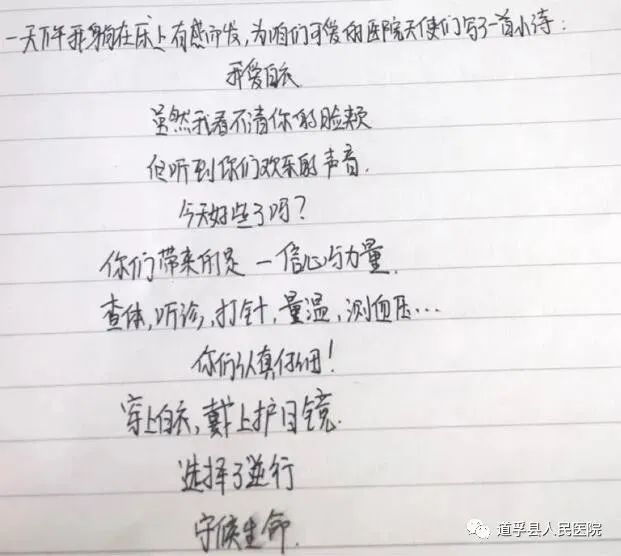 一天下午我躺在床上有感而发,为咱们可爱的医院天使们写了一首小诗:
我爱白衣
虽然我看不清你的脸颊
但听到你们欢乐的声音.
今天好些了吗?
你们带来的是一信心与力量.
查体,听诊,打针,量温,测血压...
你们认真仔细!
穿上白衣,戴上护目镜.
选择了逆行
守候生命.
道孚县人民医院